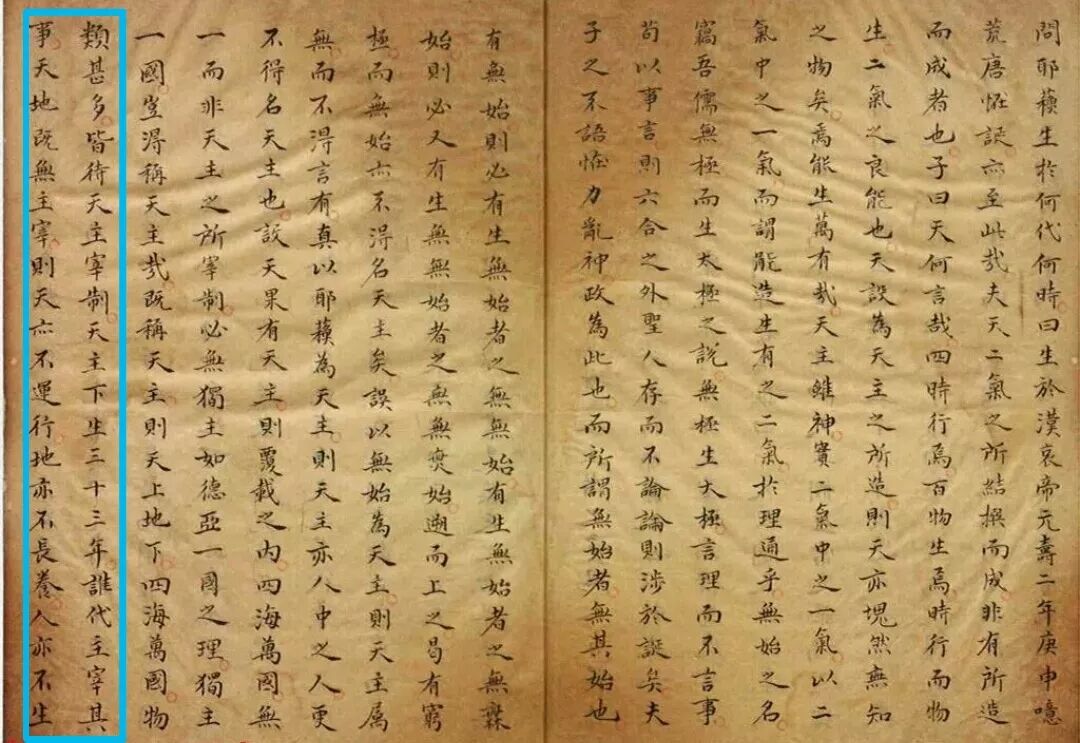 問耶穌生於何代何時曰生於漢哀帝元壽二年庚申噫
荒唐怪誕亦至此哉夫天二氣之所結撰而成非有所造
而成者也子曰天何言哉四時行焉百物生焉時行而物
生二氣之良能也天設為天主之所造則天亦塊然無知
之物矣焉能生萬有哉天主雖神實二氣中之一氣以二
氣中之一氣而謂能造生有之二氣於理通乎無始之名
竊吾儒無極而生太極之說無極生大極言理而不言事
苟以事言則六合之外聖人存而不論論則涉於誕矣夫
子之不語怪力亂神政為此也而所謂無始者無其始也
有無始則必有生無始者之無無始有生無始者之無無
始則必又有生無無始者之無無無始遡而上之曷有窮
極而無始亦不得名天主矣誤以無始為天主則天主属
無而不得言有真以耶穌為天主則天主亦人中之人更
不得名天主也設天果有天主則覆載之內四海萬國無
一而非天主之所宰制必無獨主如德亞一國之理獨主
一國豈得稱天主哉既稱天主則天上地下四海萬國物
類甚多皆待天主宰制天主下生三十三年誰代主宰其
事天地既無主宰則天亦不運行地亦不長養人亦不生